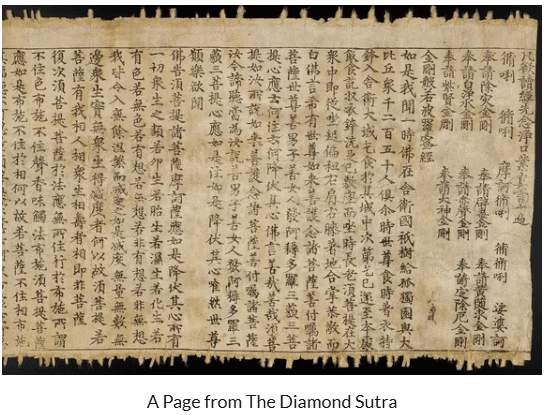 凡欲讀經先念淨口業真言一遍
脩唎 脩唎 摩訶脩唎 脩脩唎 娑婆訶
奉請除灾金剛 奉請辟毒金剛 奉請黃隨求金剛
奉請白淨水金剛 奉請赤聲金剛 奉請定除厄金剛
奉請紫賢金剛 奉請大神金剛
金剛般若波羅蜜經
如是我聞一時佛在舍衛國祇樹給孤獨園與大
比丘衆千二百五十人俱尒時世尊食時著衣持
鉢入舍衛大城乞食於其城中次第乞已還至本處
飯食訖收衣鉢洗足已敷座而坐時長老須菩提在大
衆中即從坐起偏袒右肩右膝著地合掌恭敬而
白佛言希有世尊如來善護念諸菩薩善付囑諸
菩薩世尊善男子善女人發阿耨多羅三藐三菩
提心應云何住云何降伏其心佛言善哉善哉須菩
提如汝所說如來善護念諸菩薩善付囑諸菩薩
汝今諦聽當為汝說善男子善女人發阿耨多羅三
藐三菩提心應如是住如是降伏其心唯然世尊
願樂欲聞
佛告須菩提諸菩薩摩訶薩應如是降伏其心所有
一切衆生之類若卵生若胎生若濕生若化生若
有色若無色若有想若無想若非有想非無想
我皆令入無餘涅槃而滅度之如是滅度無量無數無
邊衆生實無衆生得滅度者何以故須菩提若
菩薩有我相人相衆生相壽者相即非菩薩
復次須菩提菩薩於法應無所住行於布施所謂
不住色布施不住聲香味觸法布施須菩提菩薩
應如是布施不住於相何以故若菩薩不住相布施
A Page from The Diamond Sutra